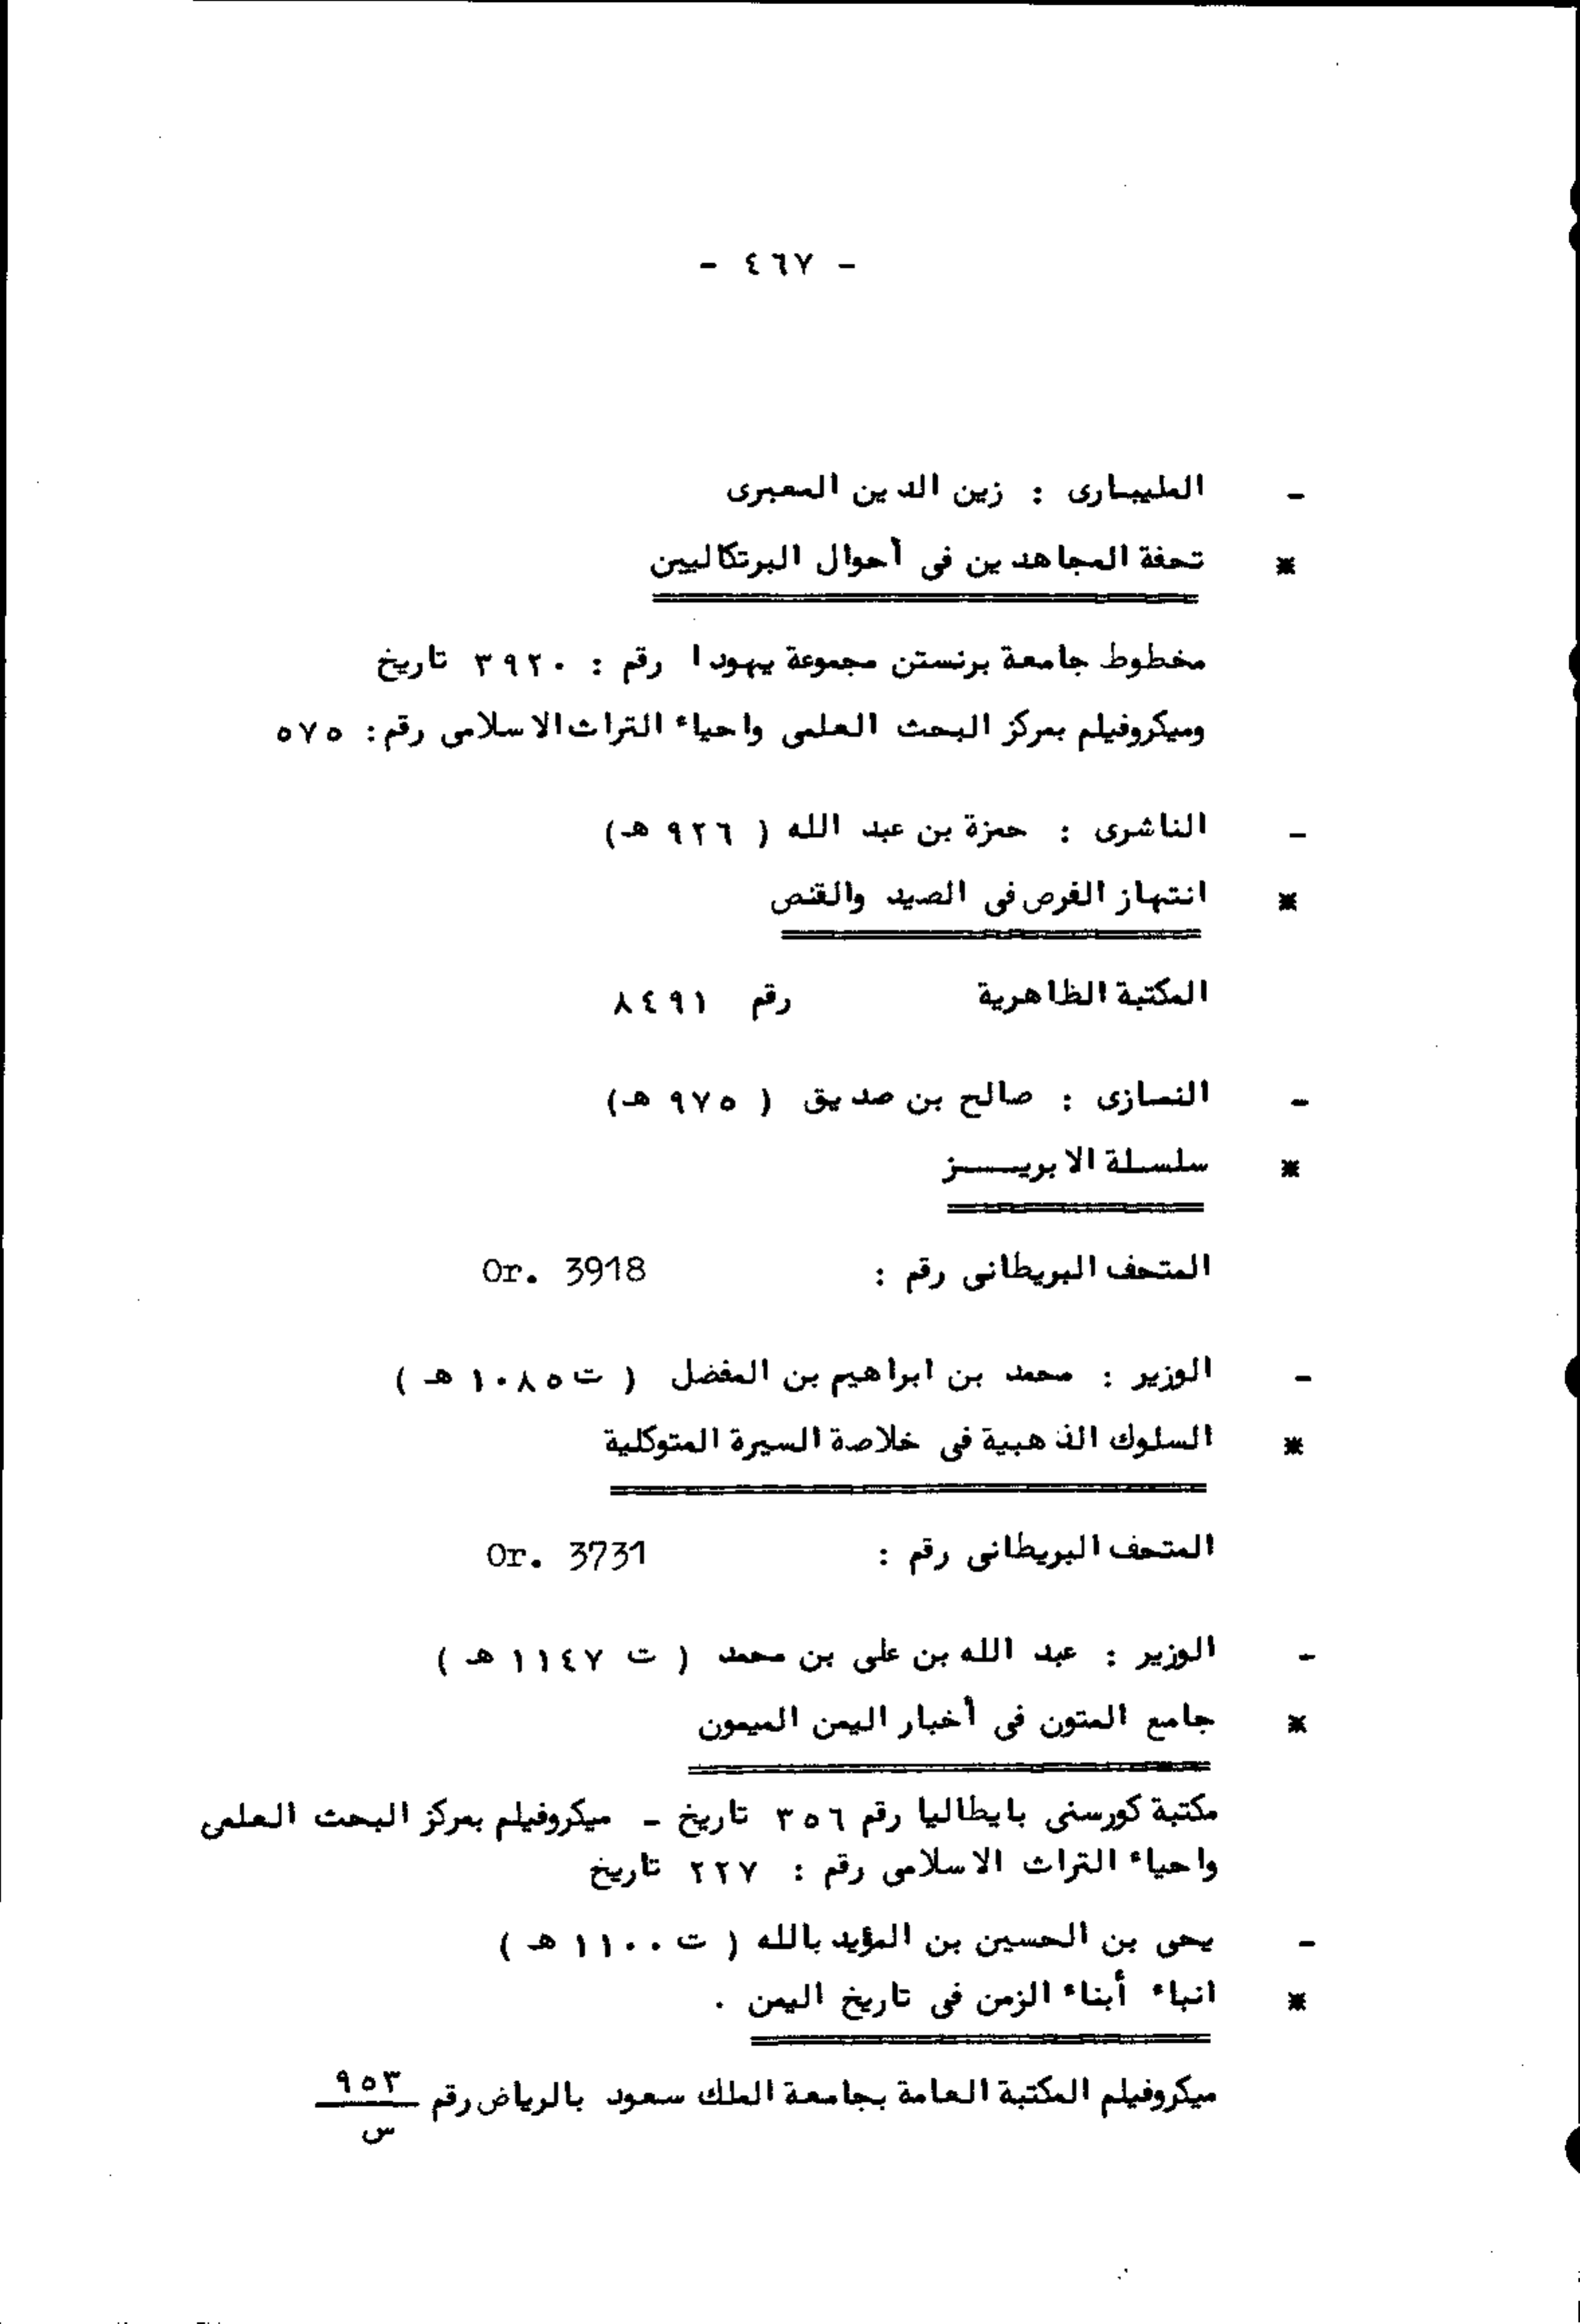 - ٤٦٧ -
- المليبارى : زين الدين المعبرى
* تحفة المجاهدين فى أحوال البرتكاليين
مخطوط جامعة برنستن مجموعة يهودا رقم : ٣٩٢٠ تاريخ
وميكروفيلم بمركز البحث العلمى واحياء التراث الاسلامى رقم : ٥٧٥
- الناشرى : حمزة بن عبد الله ( ٩٢٦ هـ)
* انتهاز الفرص فى الصيد والقنص
المكتبة الظاهرية رقم ٨٤٩١
- النمازى : صالح بن صديق ( ٩٧٥ هـ)
* سلسلة الابريـــز
المتحف البريطانى رقم : Or. 3918
- الوزير : محمد بن ابراهيم بن المفضل ( ت ١٠٨٥ هـ )
* السلوك الذهبية فى خلاصة السيرة المتوكلية
المتحف البريطانى رقم : Or. 3731
- الوزير : عبد الله بن على بن محمد ( ت ١١٤٧ هـ )
* جامع المتون فى أخبار اليمن الميمون
مكتبة كورسنى بايطاليا رقم ٣٥٦ تاريخ - ميكروفيلم بمركز البحث العلمى
واحياء التراث الاسلامى رقم : ٢٢٧ تاريخ
- يحى بن الحسين بن المؤيد بالله ( ت ١١٠٠ هـ )
* انباء أبناء الزمن فى تاريخ اليمن .
ميكروفيلم المكتبة العامة بجامعة الملك سعود بالرياض رقم ٩٥٣
س